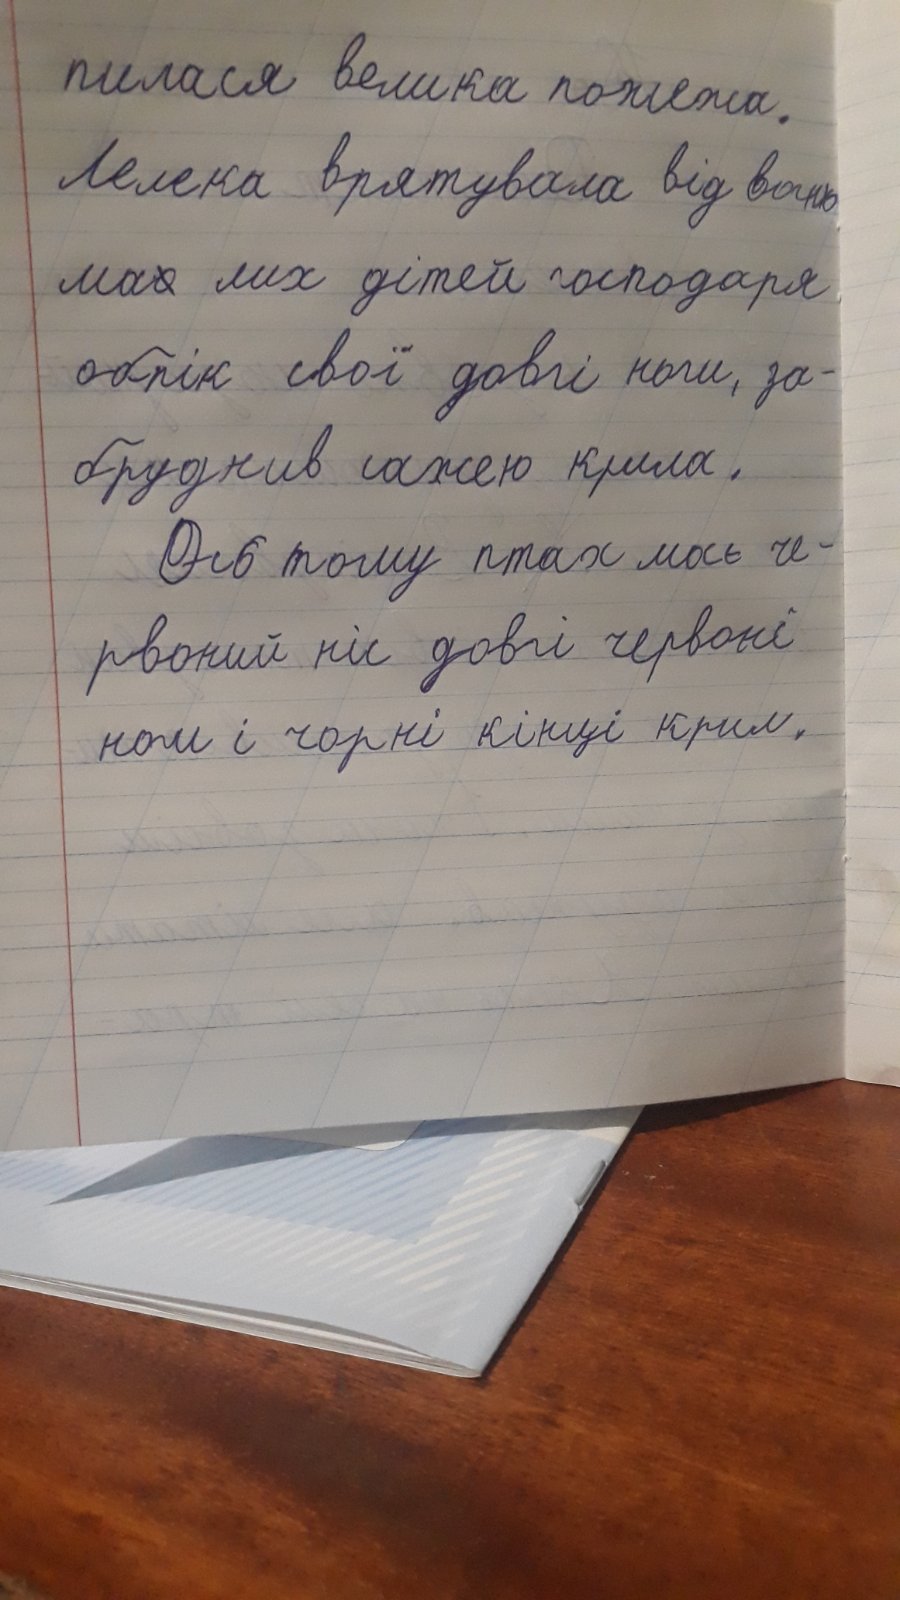 пилася велика пожежа.
Лелека врятувала від вогню
мах лих дітей господаря
обпік свої довгі ноги, за-
бруднив сажею крила.
тому птах має че-
рвоний ніс довгі червоні
ноги і чорні кінці крил.